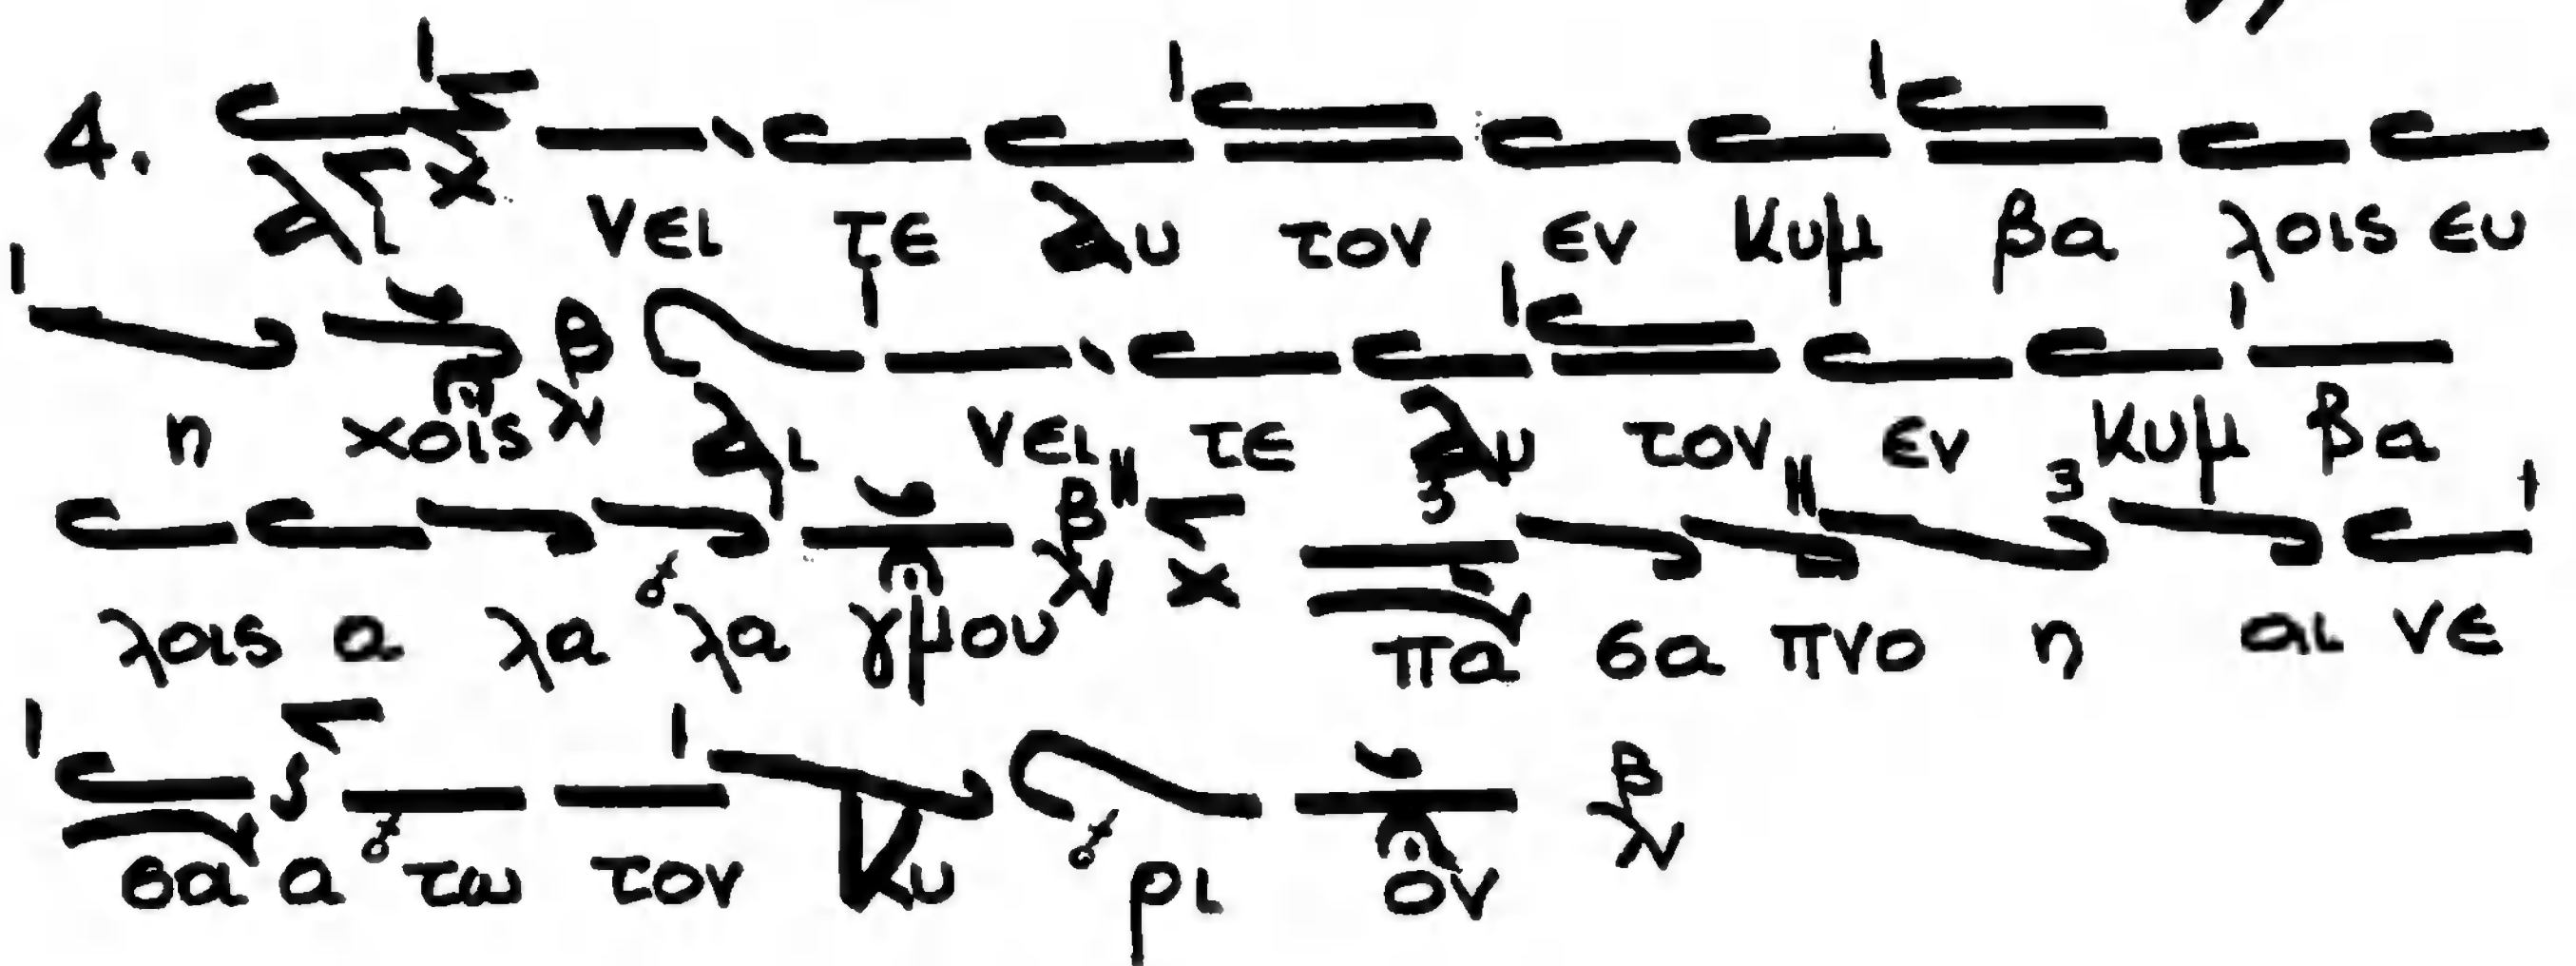 4. Αι νει τε Αυ τον εν κυμ βα λοις ευ
η χοις Αι νει τε Αυ τον εν κυμ βα
λοις α λα λα γμου πα σα πνο η αι νε
σα α τω τον Κυ ρι ον